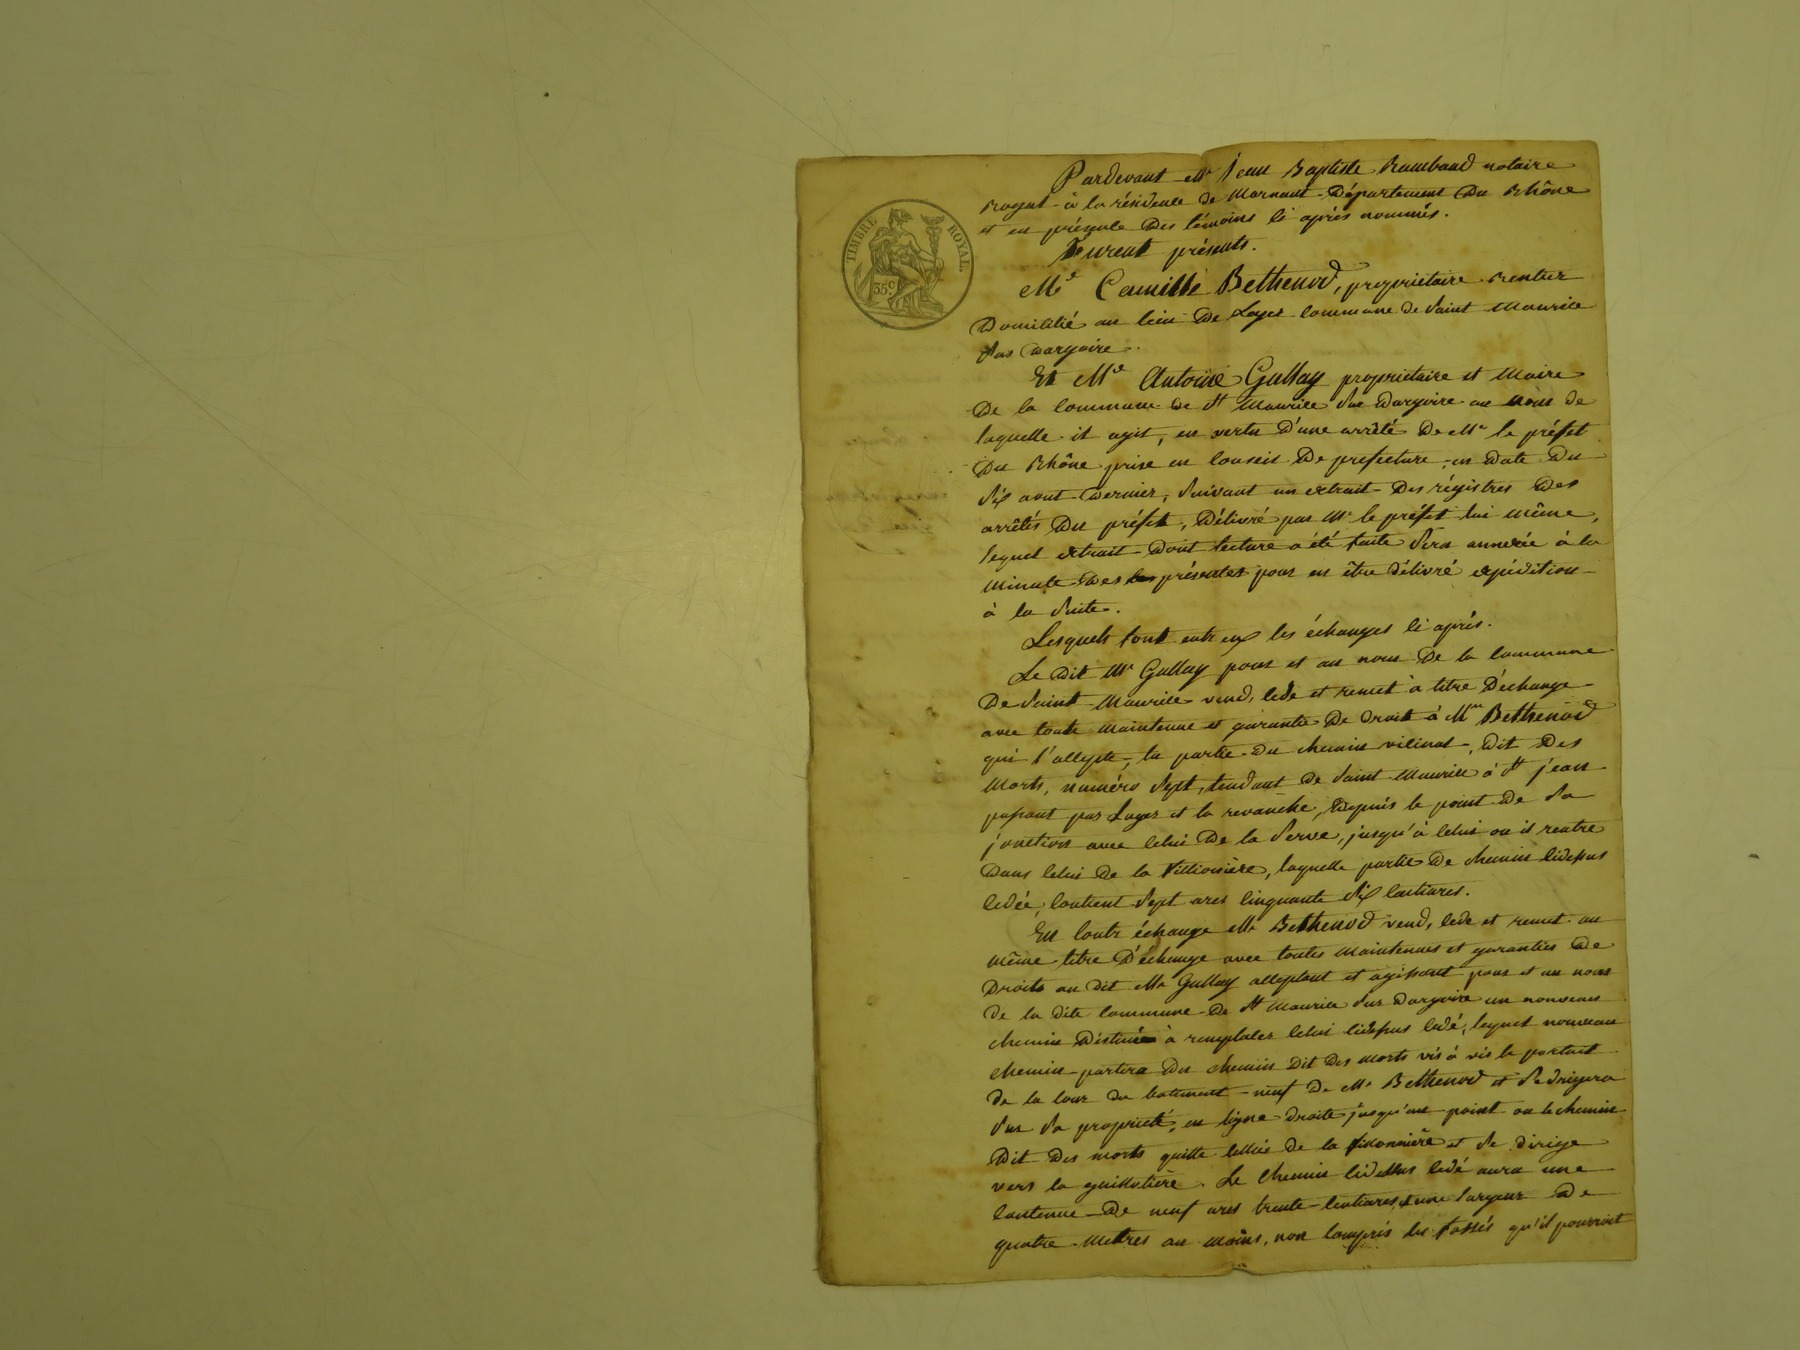 TIMBRE ROYAL.
35 c
Pardevant Me Jean Baptiste Rambaud notaire
royal à la résidence de Mornant Département Du Rhône
et en présence Des témoins ci après nommés.
Furent présents.
Mr Camille Bethenod, propriétaire rentier
Domicilié au lieu De Layes commune de Saint Maurice
sur Dargoire.
Et Mr Antoine Gullay propriétaire et Maire
De la commune de St Maurice sur Dargoire au nom de
laquelle il agit, en vertu D'une arrêté De Mr le préfet
Du Rhône prise en conseil De prefecture, en Date Du
six aout Dernier, suivant un extrait Des régistres Des
arrêtés Du préfet, Délivré par Mr le préfet lui même,
lequel extrait Dont lecture a été faite sera annexée à la
minute Des présentes pour en être délivré expédition
à la suite.
Lesquels font entr'eux les échanges ci après.
Le Dit Mr Gullay pour et au nom De la commune
De Saint Maurice vend, cede et remet à titre D'échange
avec toute maintenue et garantie De Droit à Mr Bethenod
qui l'accepte, la partie Du chemin vicinal, Dit Des
Morts, numéro sept, tendant de Saint Maurice à St jean
passant par Layes et la revanche, Depuis le point De sa
jonction avec celui De la Serve, jusqu'à celui ou il rentre
Dans celui De la Fillionière, laquelle partie De chemin cidessus
cedée, contient sept ares cinquante six centiares.
En contr'échange Mr Bethenod vend, cede et remet au
même titre D'échange avec toutes maintenues et garanties De
Droits au Dit Mr Gullay acceptant et agissant pour et au nom
de la Dite commune De St Maurice sur Dargoire un nouveau
chemin Destiné à remplacer celui cidessus cedé, lequel nouveau
chemin partira Du chemin Dit Des morts vis à vis le portail
de la cour du batiment neuf De Mr Bethenod et se drigera
sur sa propriété, en ligne Droite jusqu'au point ou le chemin
Dit Des morts quitte celui de la et se dirige
vers la guillotière. Le chemin cidessus cedé aura une
contenue De neuf ares trente centiares, et une largeur De
quatre Mètres au moins, non compris les fossés qu'il pourroit